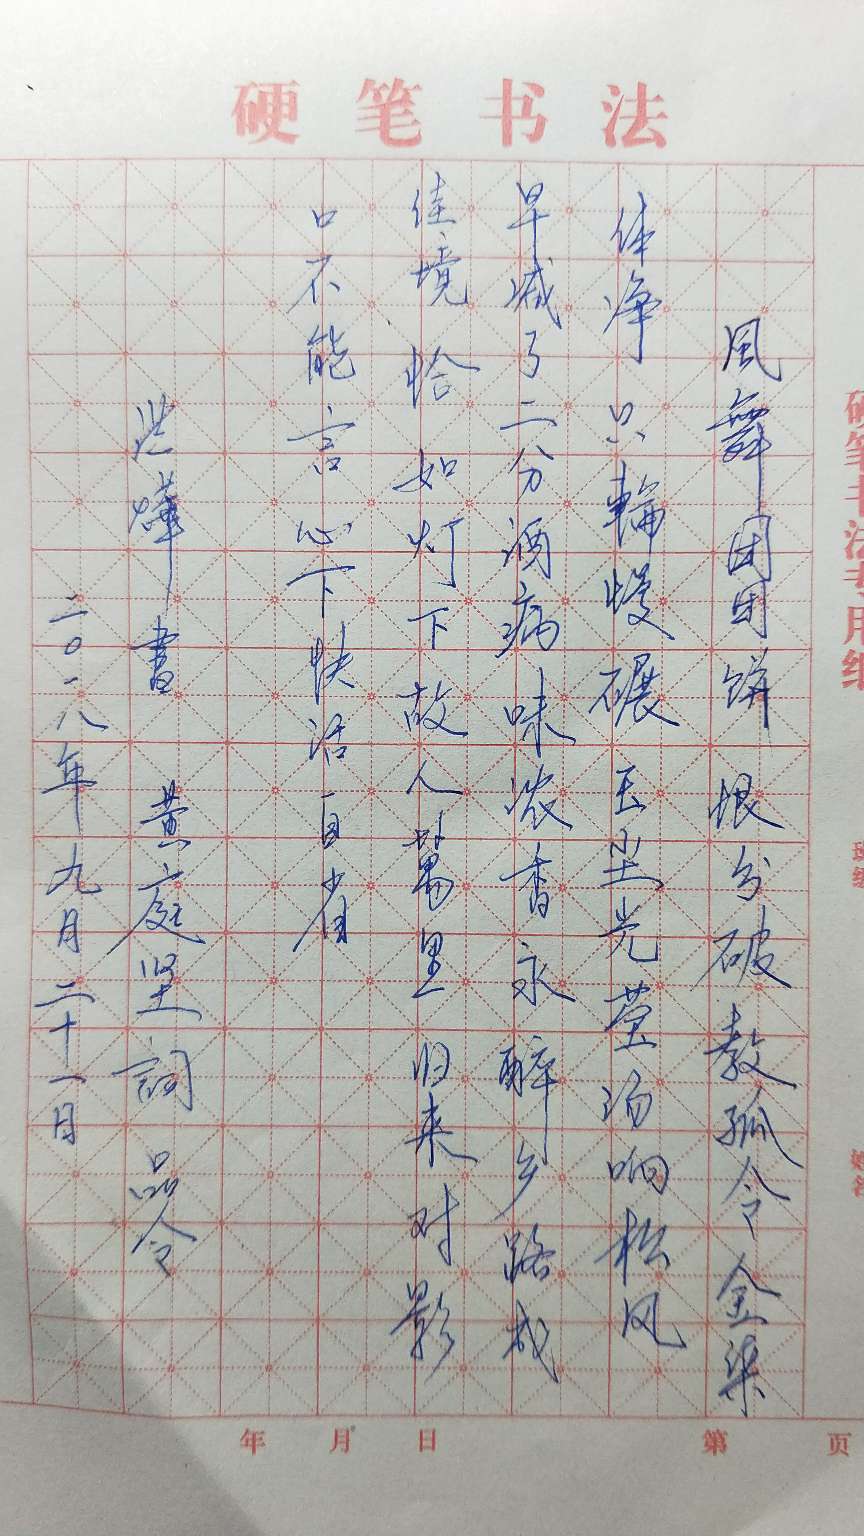 硬笔书法
風舞团团饼 恨分破教孤令金渠
体净 只輪慢碾 玉尘光莹汤响松风
早减了二分酒病味浓香永醉乡路成
佳境 恰如灯下故人萬里 归来对影
口不能言心下快活自省
書 黄庭坚詞 品令
二〇一八年九月二十一日
硬笔书法专用纸
班级
姓名
年 月 日 第 页